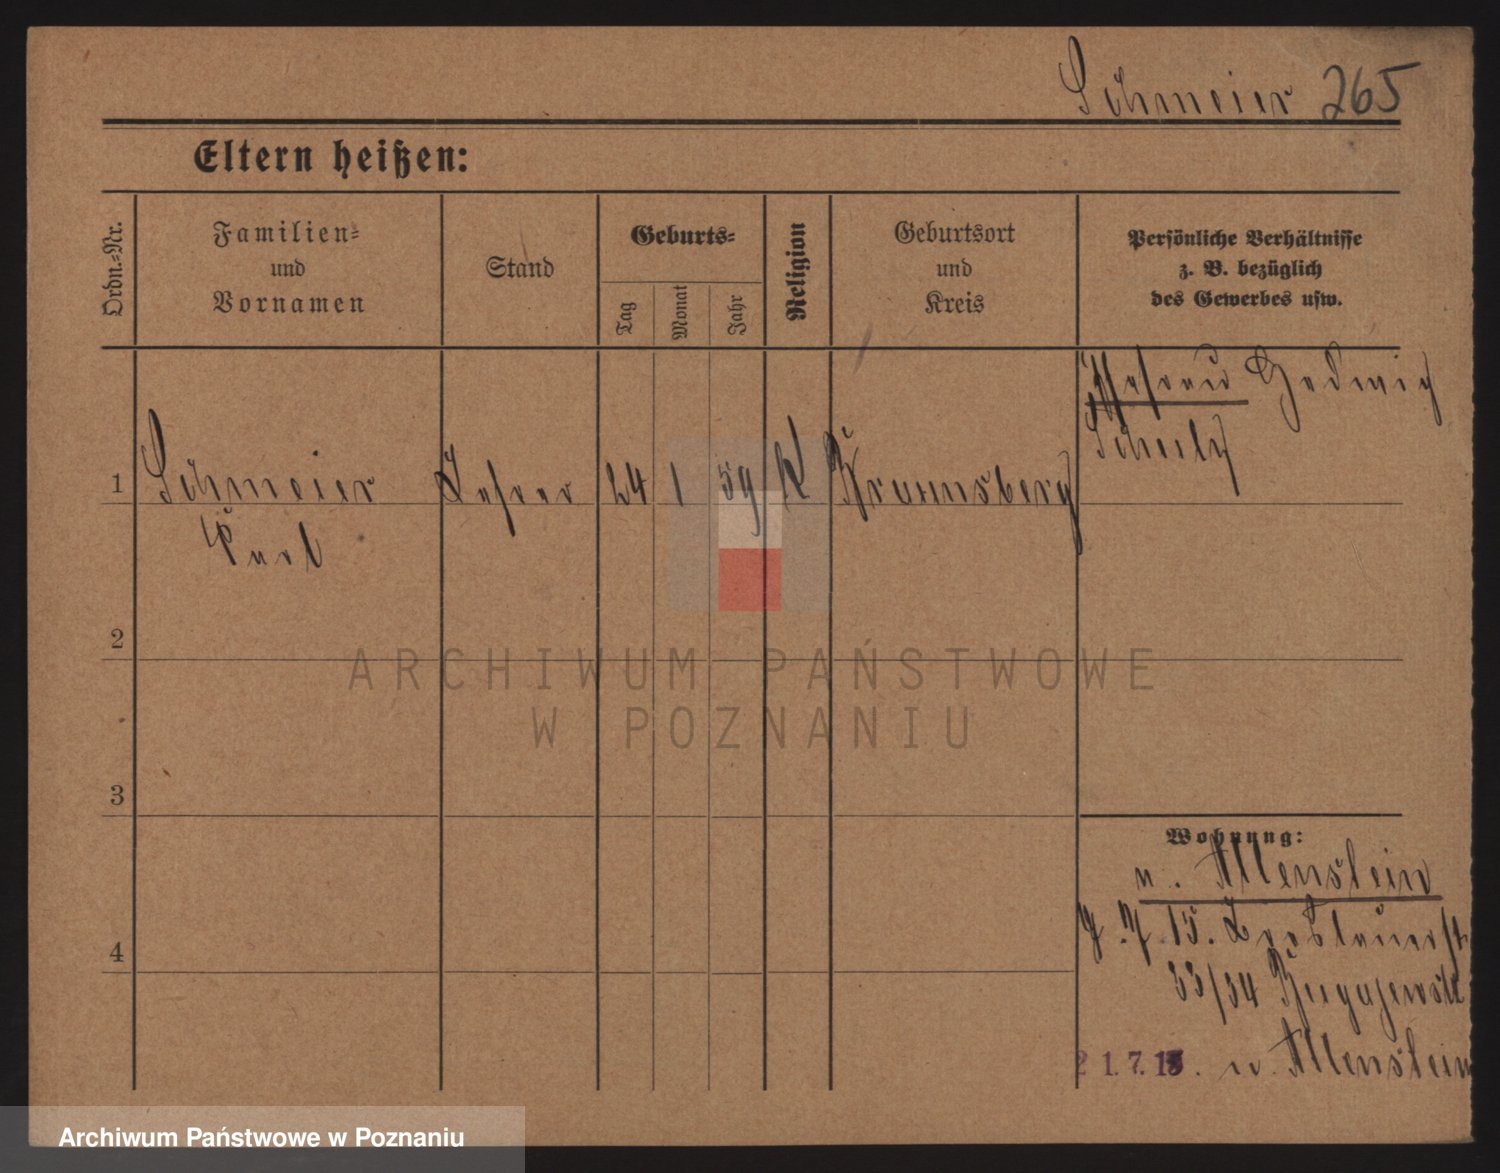 Schmeier 265
Eltern heißen:
Ordn.-Nr.
Familien-
und
Vornamen
Stand
Geburts-
Tag
Monat
Jahr
Religion
Geburtsort
und
Kreis
Persönliche Verhältnisse
z. B. bezüglich
des Gewerbes usw.
Ehefrau Hedwig
Schulz
1 Schmeier Lehrer 24 1 59 K Braunsberg
Karl
2
3
4
Wohnung:
n. Allenstein
7. 15. Breslauerstr
33/34
21.7.15. n. Allenstein
ARCHIWUM PAŃSTWOWE
W POZNANIU
Archiwum Państwowe w Poznaniu